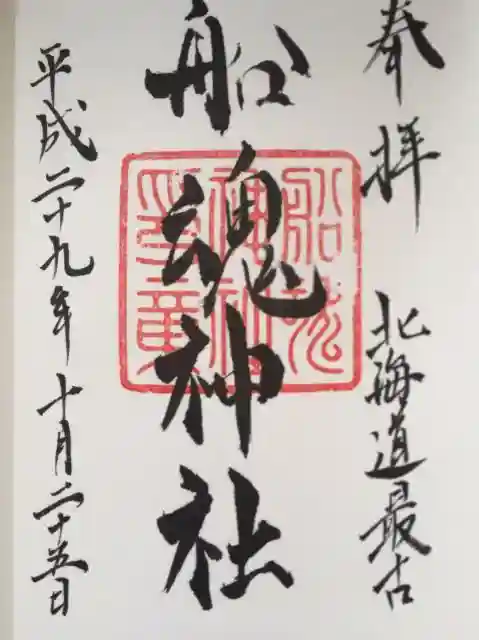 奉拝 北海道最古
船魂神社
平成二十九年十月二十五日
船魂
神社